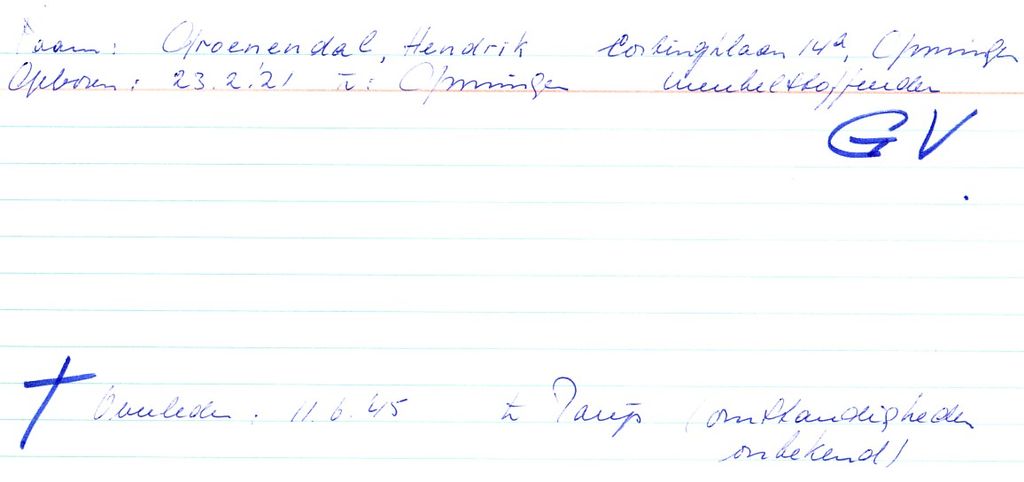 Naam: Groenendal, Hendrik Corbingklaan 14a, Groningen
Geboren: 23.2.'21 te: Groningen meubelstoffeerder
GV
† Overleden: 11.6.45 te Parijs (omstandigheden
onbekend)